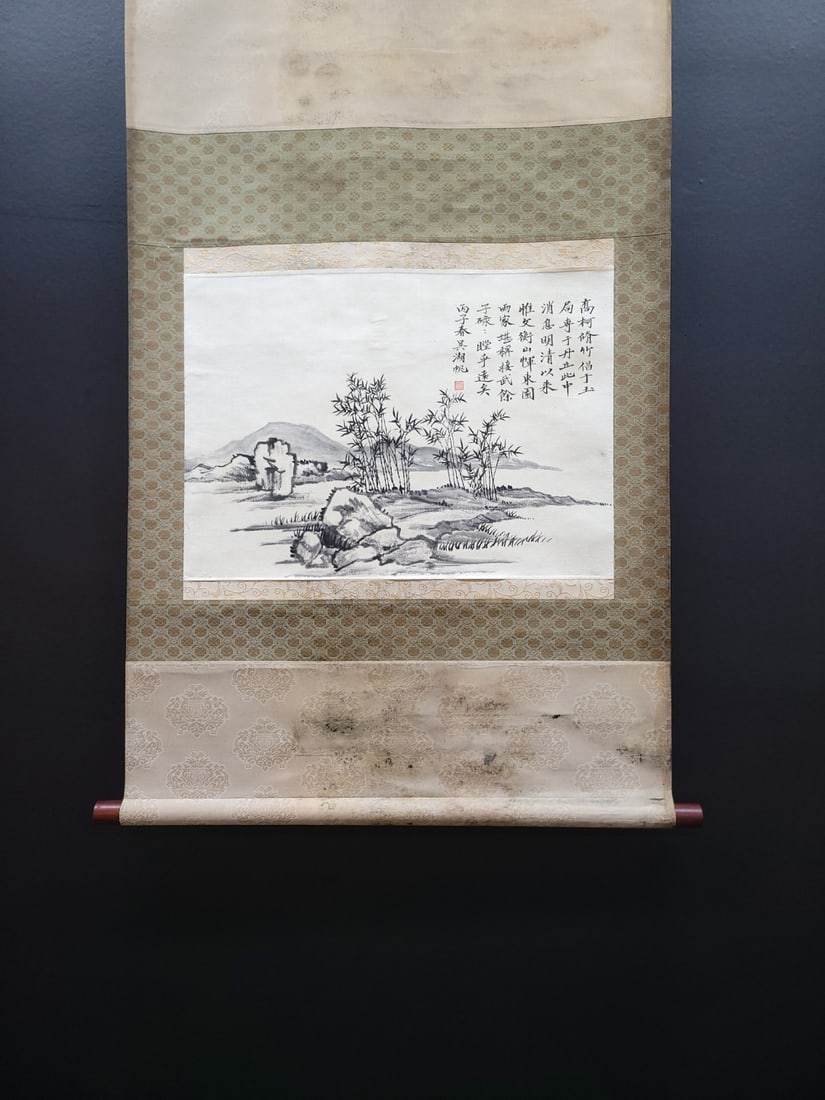 髙柯脩竹倡于玉
局專于丹丘此中
消息明清以来
惟文衡山惲東園
兩家堪稱接武餘
子碌〻瞠乎遠矣
丙子春吳湖帆